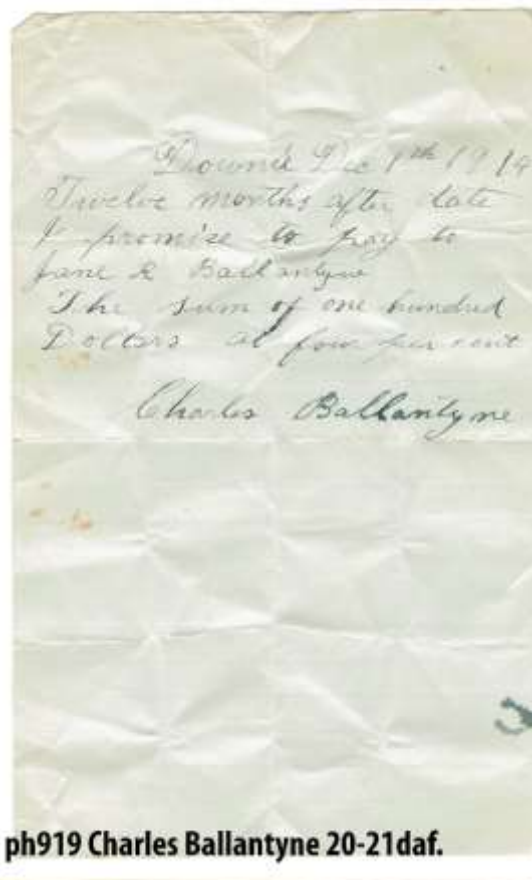 Downie Dec 1th 1914
Twelve months after date
I promise to pay to
Jane R Ballantyne
The sum of one hundred
Dollars at four per cent
Charles Ballantyne
ph919 Charles Ballantyne 20-21daf.